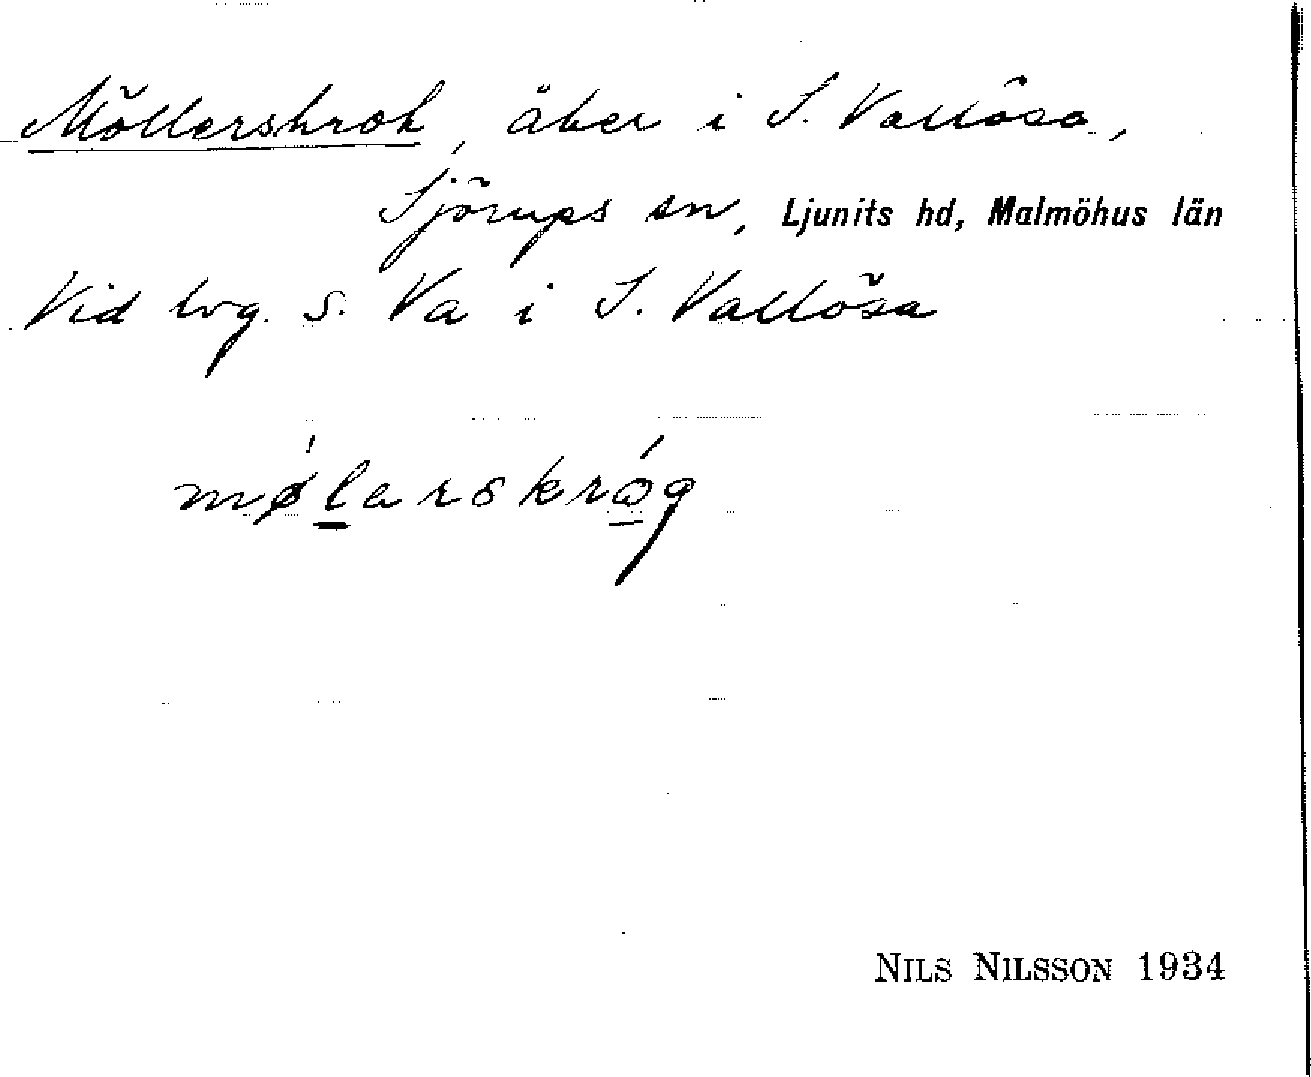 Möllerskrok, åker i S. Vallösa,
Sjörups sn, Ljunits hd, Malmöhus län
Vid lvg. S. Va i S. Vallösa
mølarskróg
NILS NILSSON 1934